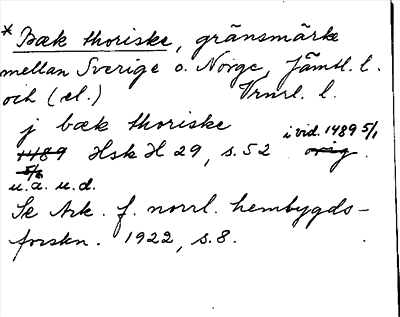 * Bæk thoriske, gränsmärke
mellan Sverige o. Norge, Jämtl. l.
och (el.) Vrml. l.
j bæk thoriske
1489 5/1 Hsk H 29, s. 52 i vid. 1489 5/1 orig.
u. a. u. d.
Se Ark. f. norrl. hembygds-
forskn. 1922, s. 8.